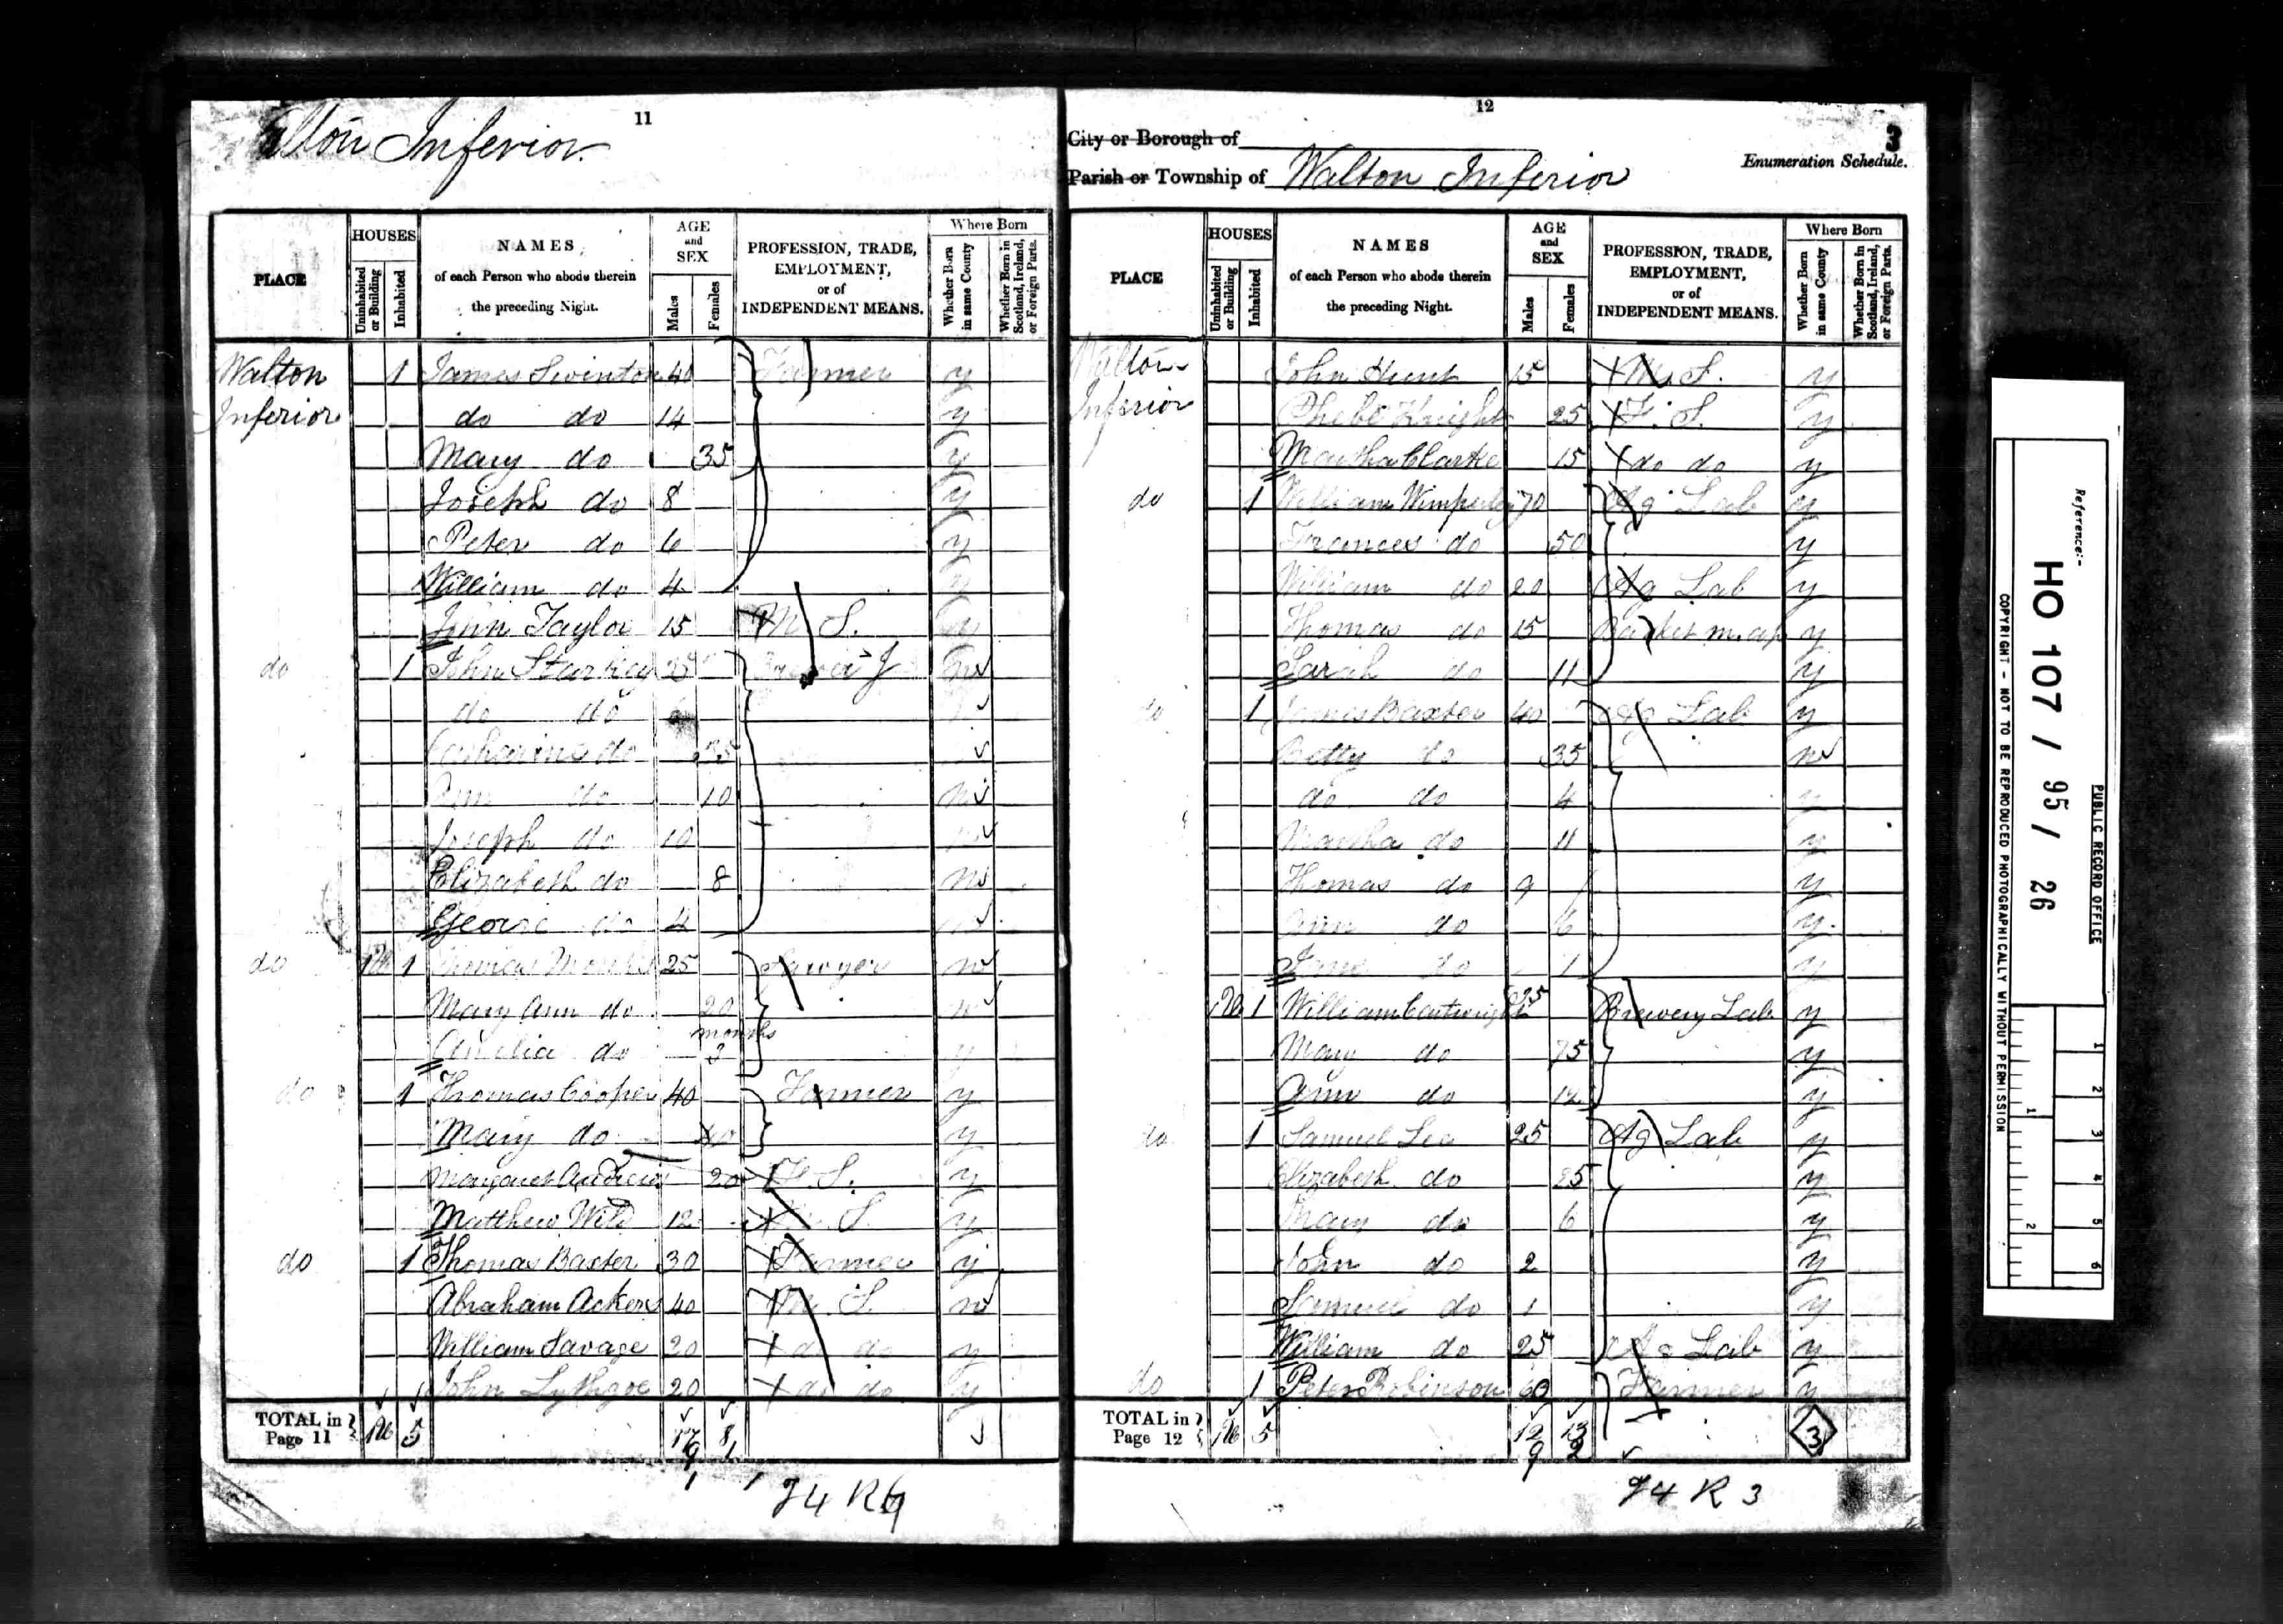 11
alton Inferior
PLACE
HOUSES
Uninhabited or Building
Inhabited
NAMES
of each Person who abode therein
the preceding Night.
AGE
and
SEX
Males
Females
PROFESSION, TRADE,
EMPLOYMENT,
or of
INDEPENDENT MEANS.
Where Born
Whether Born in same County
Whether Born in Scotland, Ireland, or Foreign Parts.
Walton 1 James Swinton 40 Farmer y
Inferior do do 14 y
Mary do 35 y
Joseph do 8 y
Peter do 6 y
William do 4 y
John Taylor 15 M. S. y
do 1 John Starkey 35 Brewer J n
do do
Catharine do 35
Ann do 10 n
Joseph do 10 n
Elizabeth do 8 n
George do 4 n
do 1 U 1 Thomas 25 Sawyer n
Mary Ann do 20 n
months
Amelia do 3 y
do 1 Thomas Cooper 40 Farmer y
Mary do 40 y
Margaret Andrews 20 F. S. y
Matthew Wild 12 M. S. y
do 1 Thomas Baxter 30 Farmer y
Abraham Ackers 40 M. S. n
William Savage 20 do do y
John Lythgoe 20 do do y
TOTAL in Page 11 1 U 5 17 8
9 1
12
3
City or Borough of
Enumeration Schedule.
Parish or Township of Walton Inferior
PLACE
HOUSES
Uninhabited or Building
Inhabited
NAMES
of each Person who abode therein
the preceding Night.
AGE
and
SEX
Males
Females
PROFESSION, TRADE,
EMPLOYMENT,
or of
INDEPENDENT MEANS.
Where Born
Whether Born in same County
Whether Born in Scotland, Ireland, or Foreign Parts.
Walton John Hunt 15 M. S. y
Inferior Phebe Knight 25 F. S. y
Martha Clarke 15 do do y
do 1 William Wimperley 70 Ag Lab y
Frances do 50 y
William do 20 Ag Lab y
Thomas do 15 Basket m. ap y
Sarah do 11 y
do 1 James Baxter 40 Ag Lab y
Betty do 35 n
do do 4 y
Martha do 11 y
Thomas do 9 y
Ann do 6 y
Jane do 1 y
1 U 1 William Cartwright Brewery Lab y
Mary do 75 y
Ann do 12 y
do 1 Samuel Lea 25 Ag Lab y
Elizabeth do 25 y
Mary do 6 y
John do 2 y
Samuel do 1 y
William do 25 Ag Lab y
do 1 Peter Robinson 60 Farmer y
TOTAL in Page 12 1 U 5 12 13 3
9 2
J4 R 3
Reference:-
HO 107 / 95 / 26
PUBLIC RECORD OFFICE
COPYRIGHT - NOT TO BE REPRODUCED PHOTOGRAPHICALLY WITHOUT PERMISSION
1 2 3 4 5 6
1 2